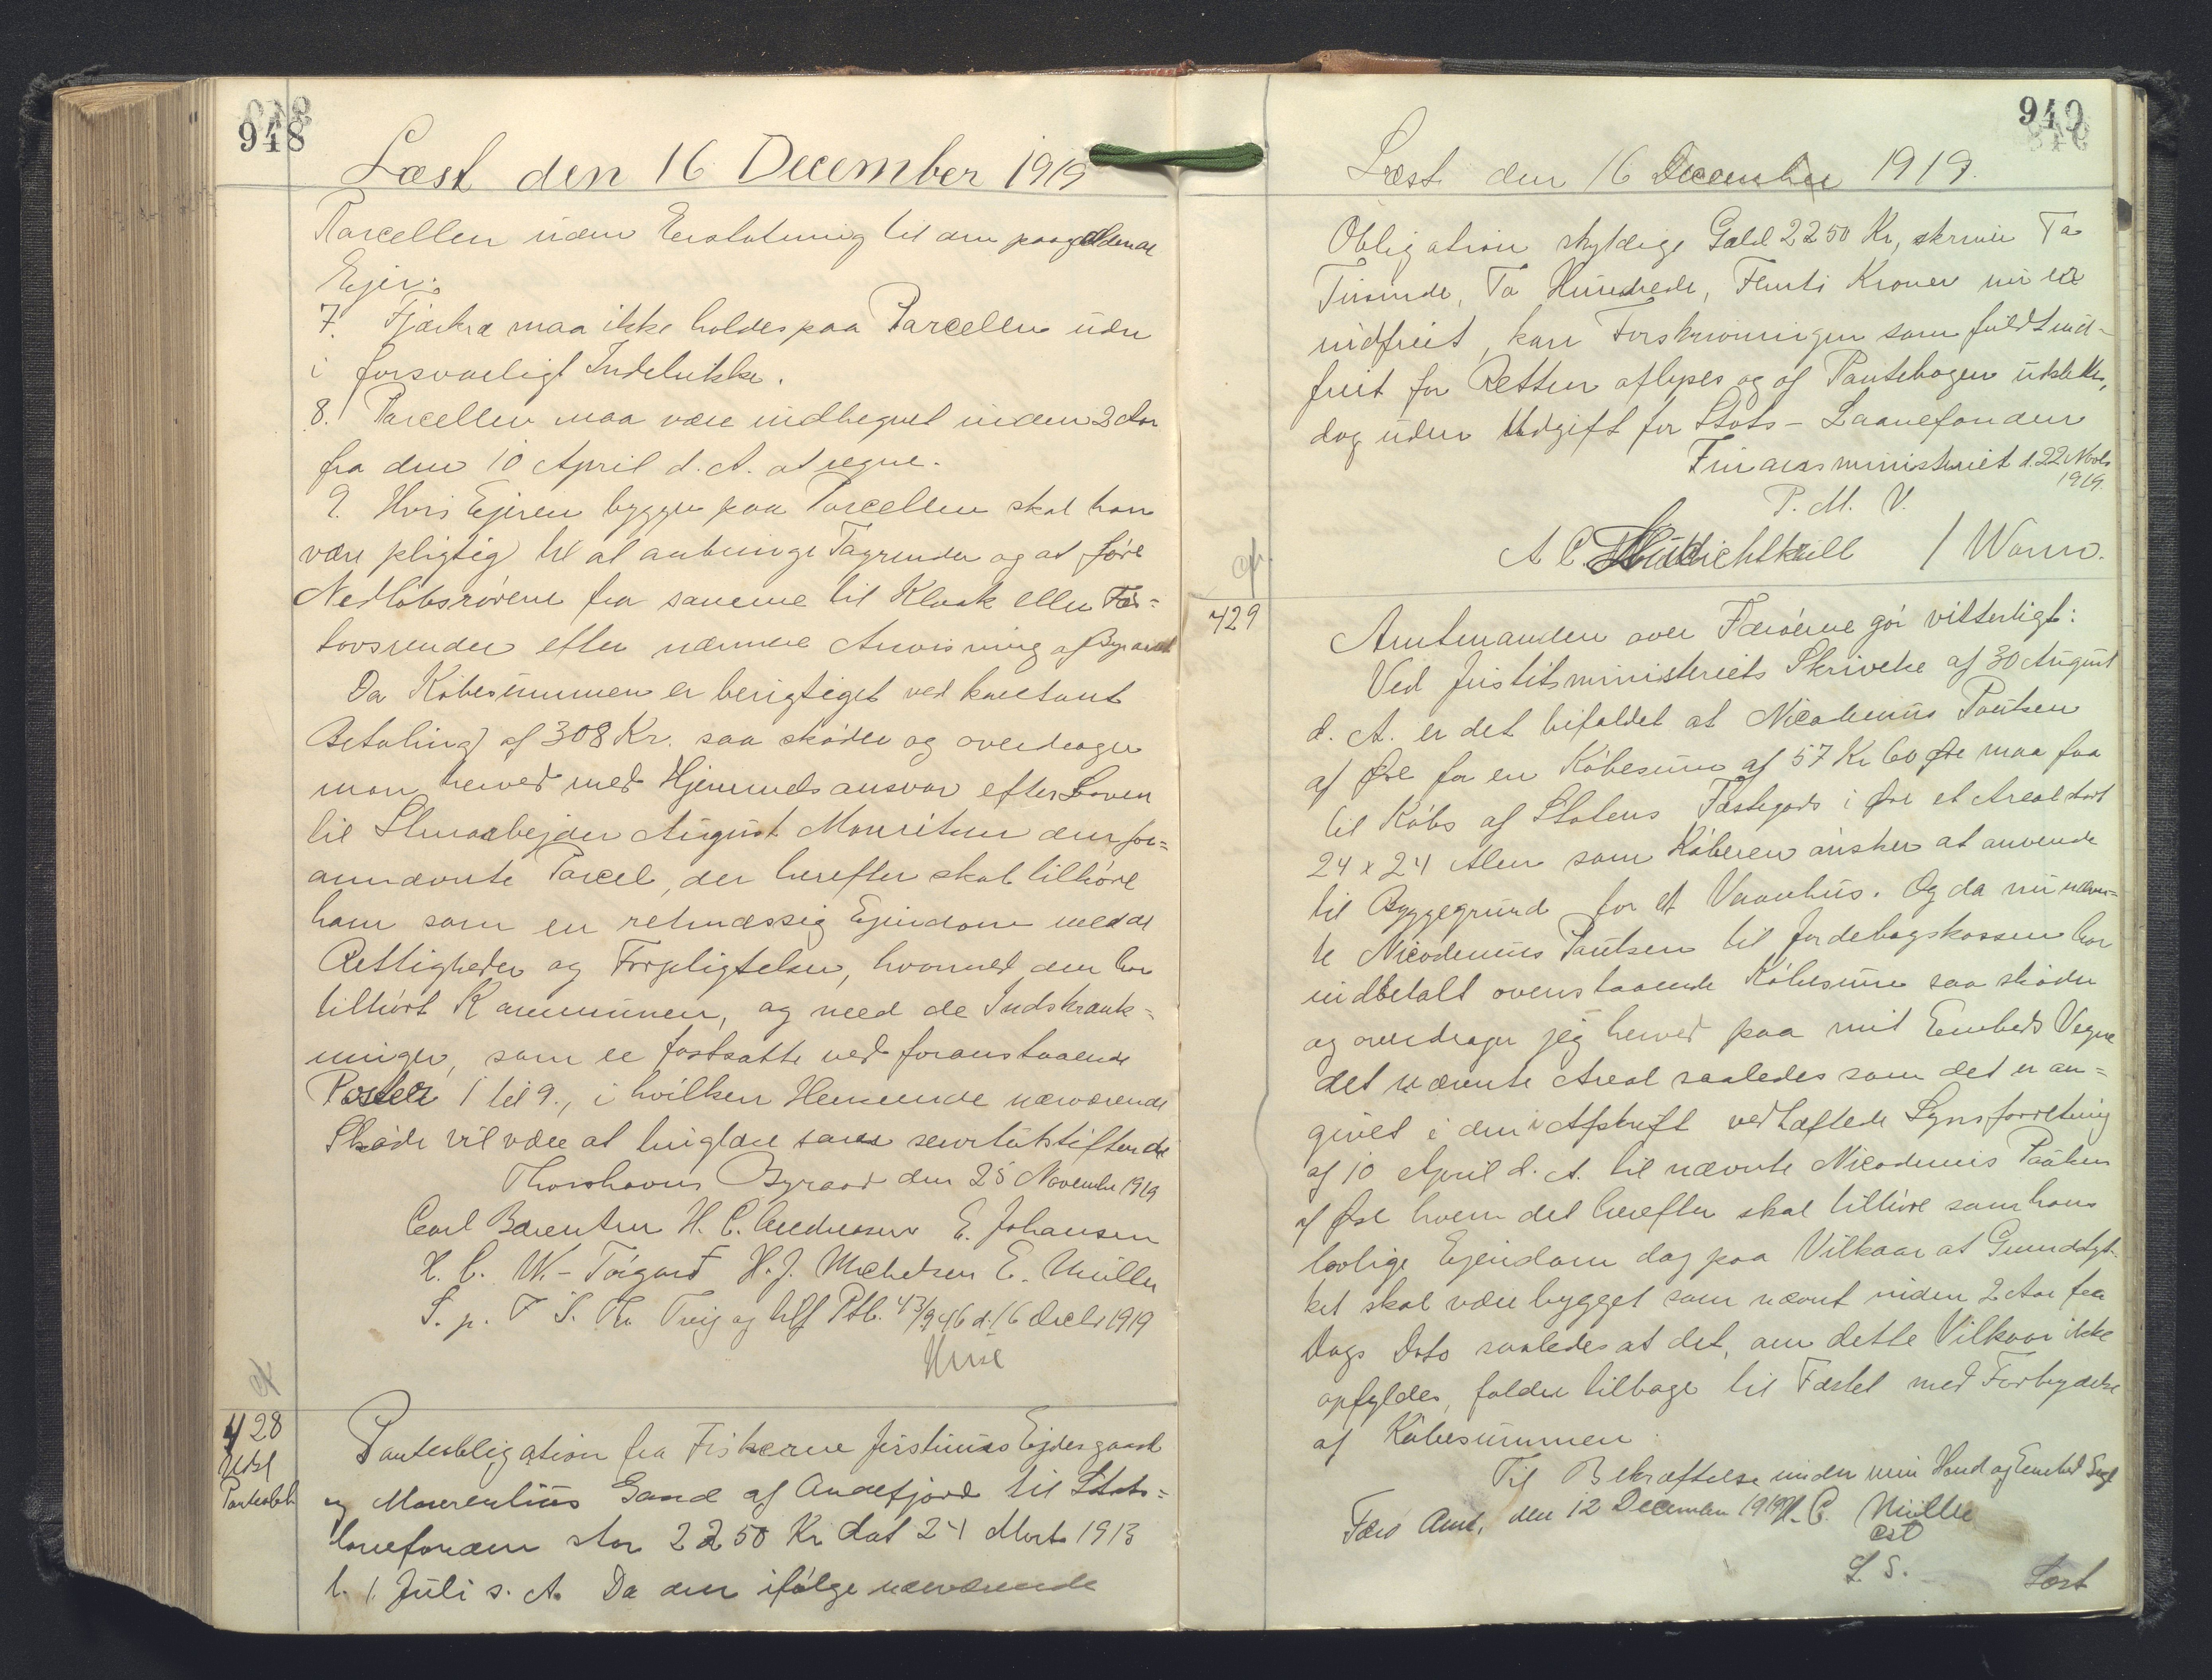 948
Læst den 16 December 1919
Parcellen uden Erstatning til den paagældende
Ejer.
7. Fjærkræ maa ikke holdes paa Parcellen uden
i forsvarligt Indelukke.
8. Parcellen maa være indhegnet inden 3 Aar
fra den 10 April d. A. at regne.
9. Hvis Ejeren bygger paa Parcellen skal han
være pligtig til at anbringe Tagrender og at føre
Nedløbsrørene fra samme til Kloak eller For=
tovsrender efter nærmere Anvisning af Byraadet
Da Købesummen er berigtiget ved kontant
Betaling af 308 Kr. saa skøder og overdrager
man herved med Hjemmelsansvar efter Loven
til Stenarbejder August Mouritsen den for=
annævnte Parcel, der herefter skal tilhøre
ham som en retmæssig Ejendom med de
Rettigheder og Forpligtelser, hvormed den har
tilhørt Kommunen, og med de Indskrænk=
ninger, som er fastsatte ved foranstaaende
Poster 1 til 9., i hvilken Henseende nærværende
Skøde vil være at tinglæse som servitutstiftende
Thorshavns Byraad den 25 November 1919
Carl Bærentsen H. C. Andreasen E. Johansen
H. C. W. - Tórgarð H. J. Michelsen E. Müller
S. p. F S. Th Tveig og Ptb. 43/946 d. 16 Decbr 1919
428
Udsl
Panteobl.
Panteobligation fra Fiskerne Justinus Ejdesgaard
og Maurentius Sand af Andefjord til Stats=
laanefonden stor 2250 Kr dat 24 Marts 1913
t. 1. Juli s. A. Da den ifølge nærværende
949
Læst den 16 December 1919.
Obligation skyldige Gæld 2250 Kr, skriver To
Tusinde, To Hundrede, Femti Kroner nu er
indfriet, kan Forskrivningen som fuldt ind-
friet for Retten aflyses og af Pantebogen udslettes,
dog uden Udgift for Stats-Laanefonden
Finansministeriet d. 22 Novbr
1919.
P. M. V.
A C. / Worm.
429
Amtmanden over Færøerne gør vitterligt:
Ved Justitsministeriets Skrivelse af 30 August
d. A. er det bifaldet at Nicodemus Poulsen
af Øre for en Købesum af 57 Kr 60 Øre maa faa
til Købs af Statens Fæstegods i Øre et Areal stort
24 x 24 Alen som Køberen ønsker at anvende
til Byggegrund for et Vaanhus. Og da nu nævn=
te Nicodemus Poulsen til Jordebogskassen har
indbetalt ovenstaaende Købesum saa skøder
og overdrager jeg herved paa mit Embeds Vegne
det nævnte Areal saaledes som det er an=
givet i den i Afskrift vedhæftede Synsforretning
af 10 April d. A. til nævnte Nicodemus Poulsen
af Øre hvem det herefter skal tilhøre som hans
lovlige Ejendom dog paa Vilkaar at Grundstyk-
ket skal være bygget som nævnt inden 2 Aar fra
Dags Dato saaledes at det, om dette Vilkaar ikke
opfyldes, falder tilbage til Fæstet med Forbrydelse
af Købesummen.
Til Bekræftelse under min Haand og Embeds Segl
Færø Amt, den 12 December 1919 H. C. Müller
cst
L. S.
Læst